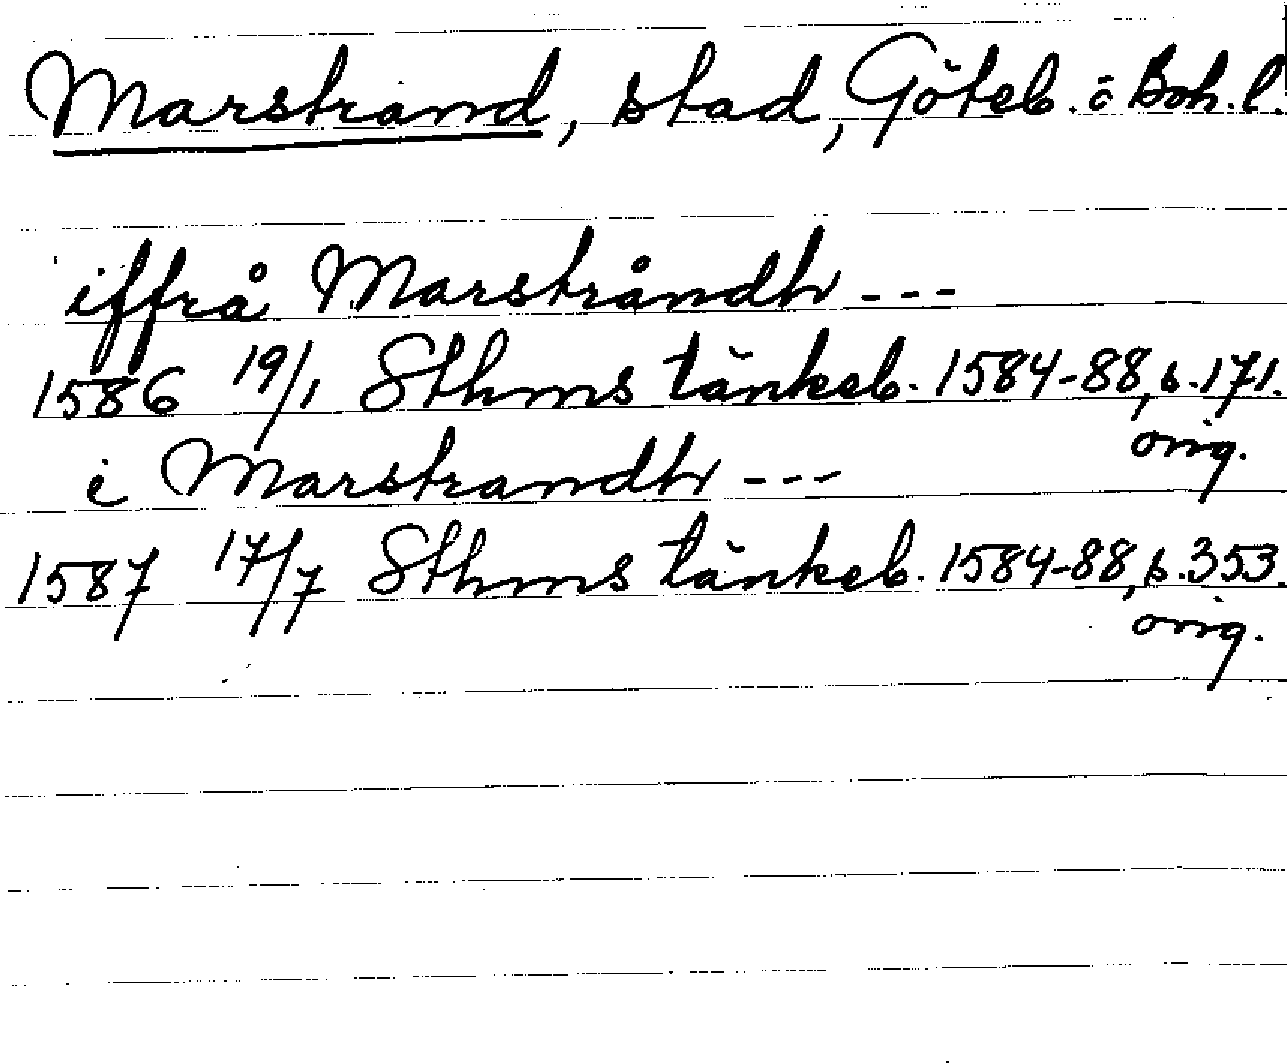 Marstrand, stad, Göteb. o Boh. l.
iffrå Marstråndh ---
1586 19/1 Sthms tänkeb. 1584-88, s. 171.
orig.
i Marstrandh ---
1587 17/7 Sthms tänkeb. 1584-88, s. 353.
orig.